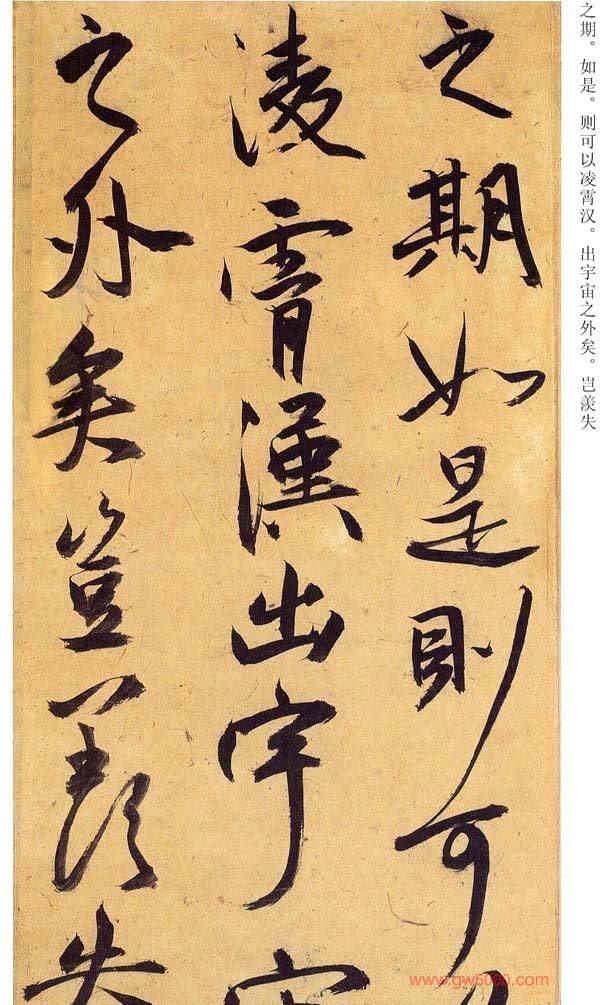 之期。如是。则可以凌霄汉。出宇宙之外矣。岂羡失
之期如是則可
淩霄漢出宇宙
之外矣豈羡失
www.gw5000.com